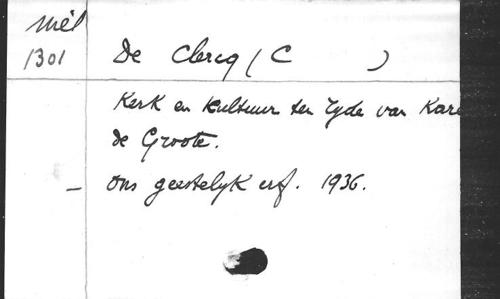 Mél
1301
De Clercq (C )
Kerk en Kultuur ten tyde van Kare
de Groote.
— Ons geestelyk erf. 1936.